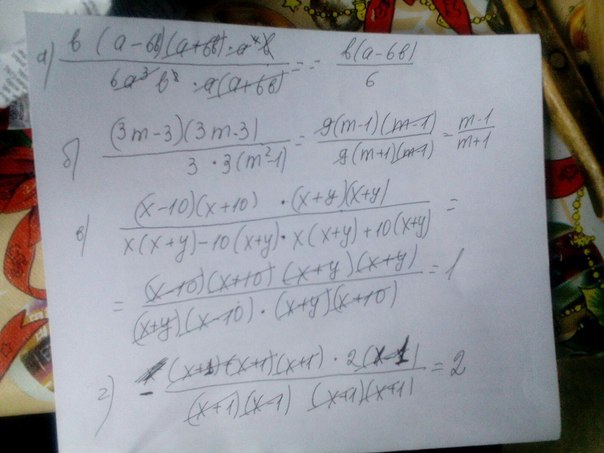 а) b (a-6b)(a+6b)·a⁴b / 6a³b² · a(a+6b) = = b(a-6b) / 6
б) (3m-3)(3m-3) / 3·3(m²-1) = 9(m-1)(m-1) / 9(m+1)(m-1) = m-1 / m+1
в) (x-10)(x+10) · (x+y)(x+y) / x(x+y)-10(x+y)·x(x+y)+10(x+y) =
= (x-10)(x+10)(x+y)(x+y) / (x+y)(x-10)·(x+y)(x+10) = 1
г) (x+1)(x+1)(x+1)·2(x-1) / (x+1)(x-1) (x+1)(x+1) = 2